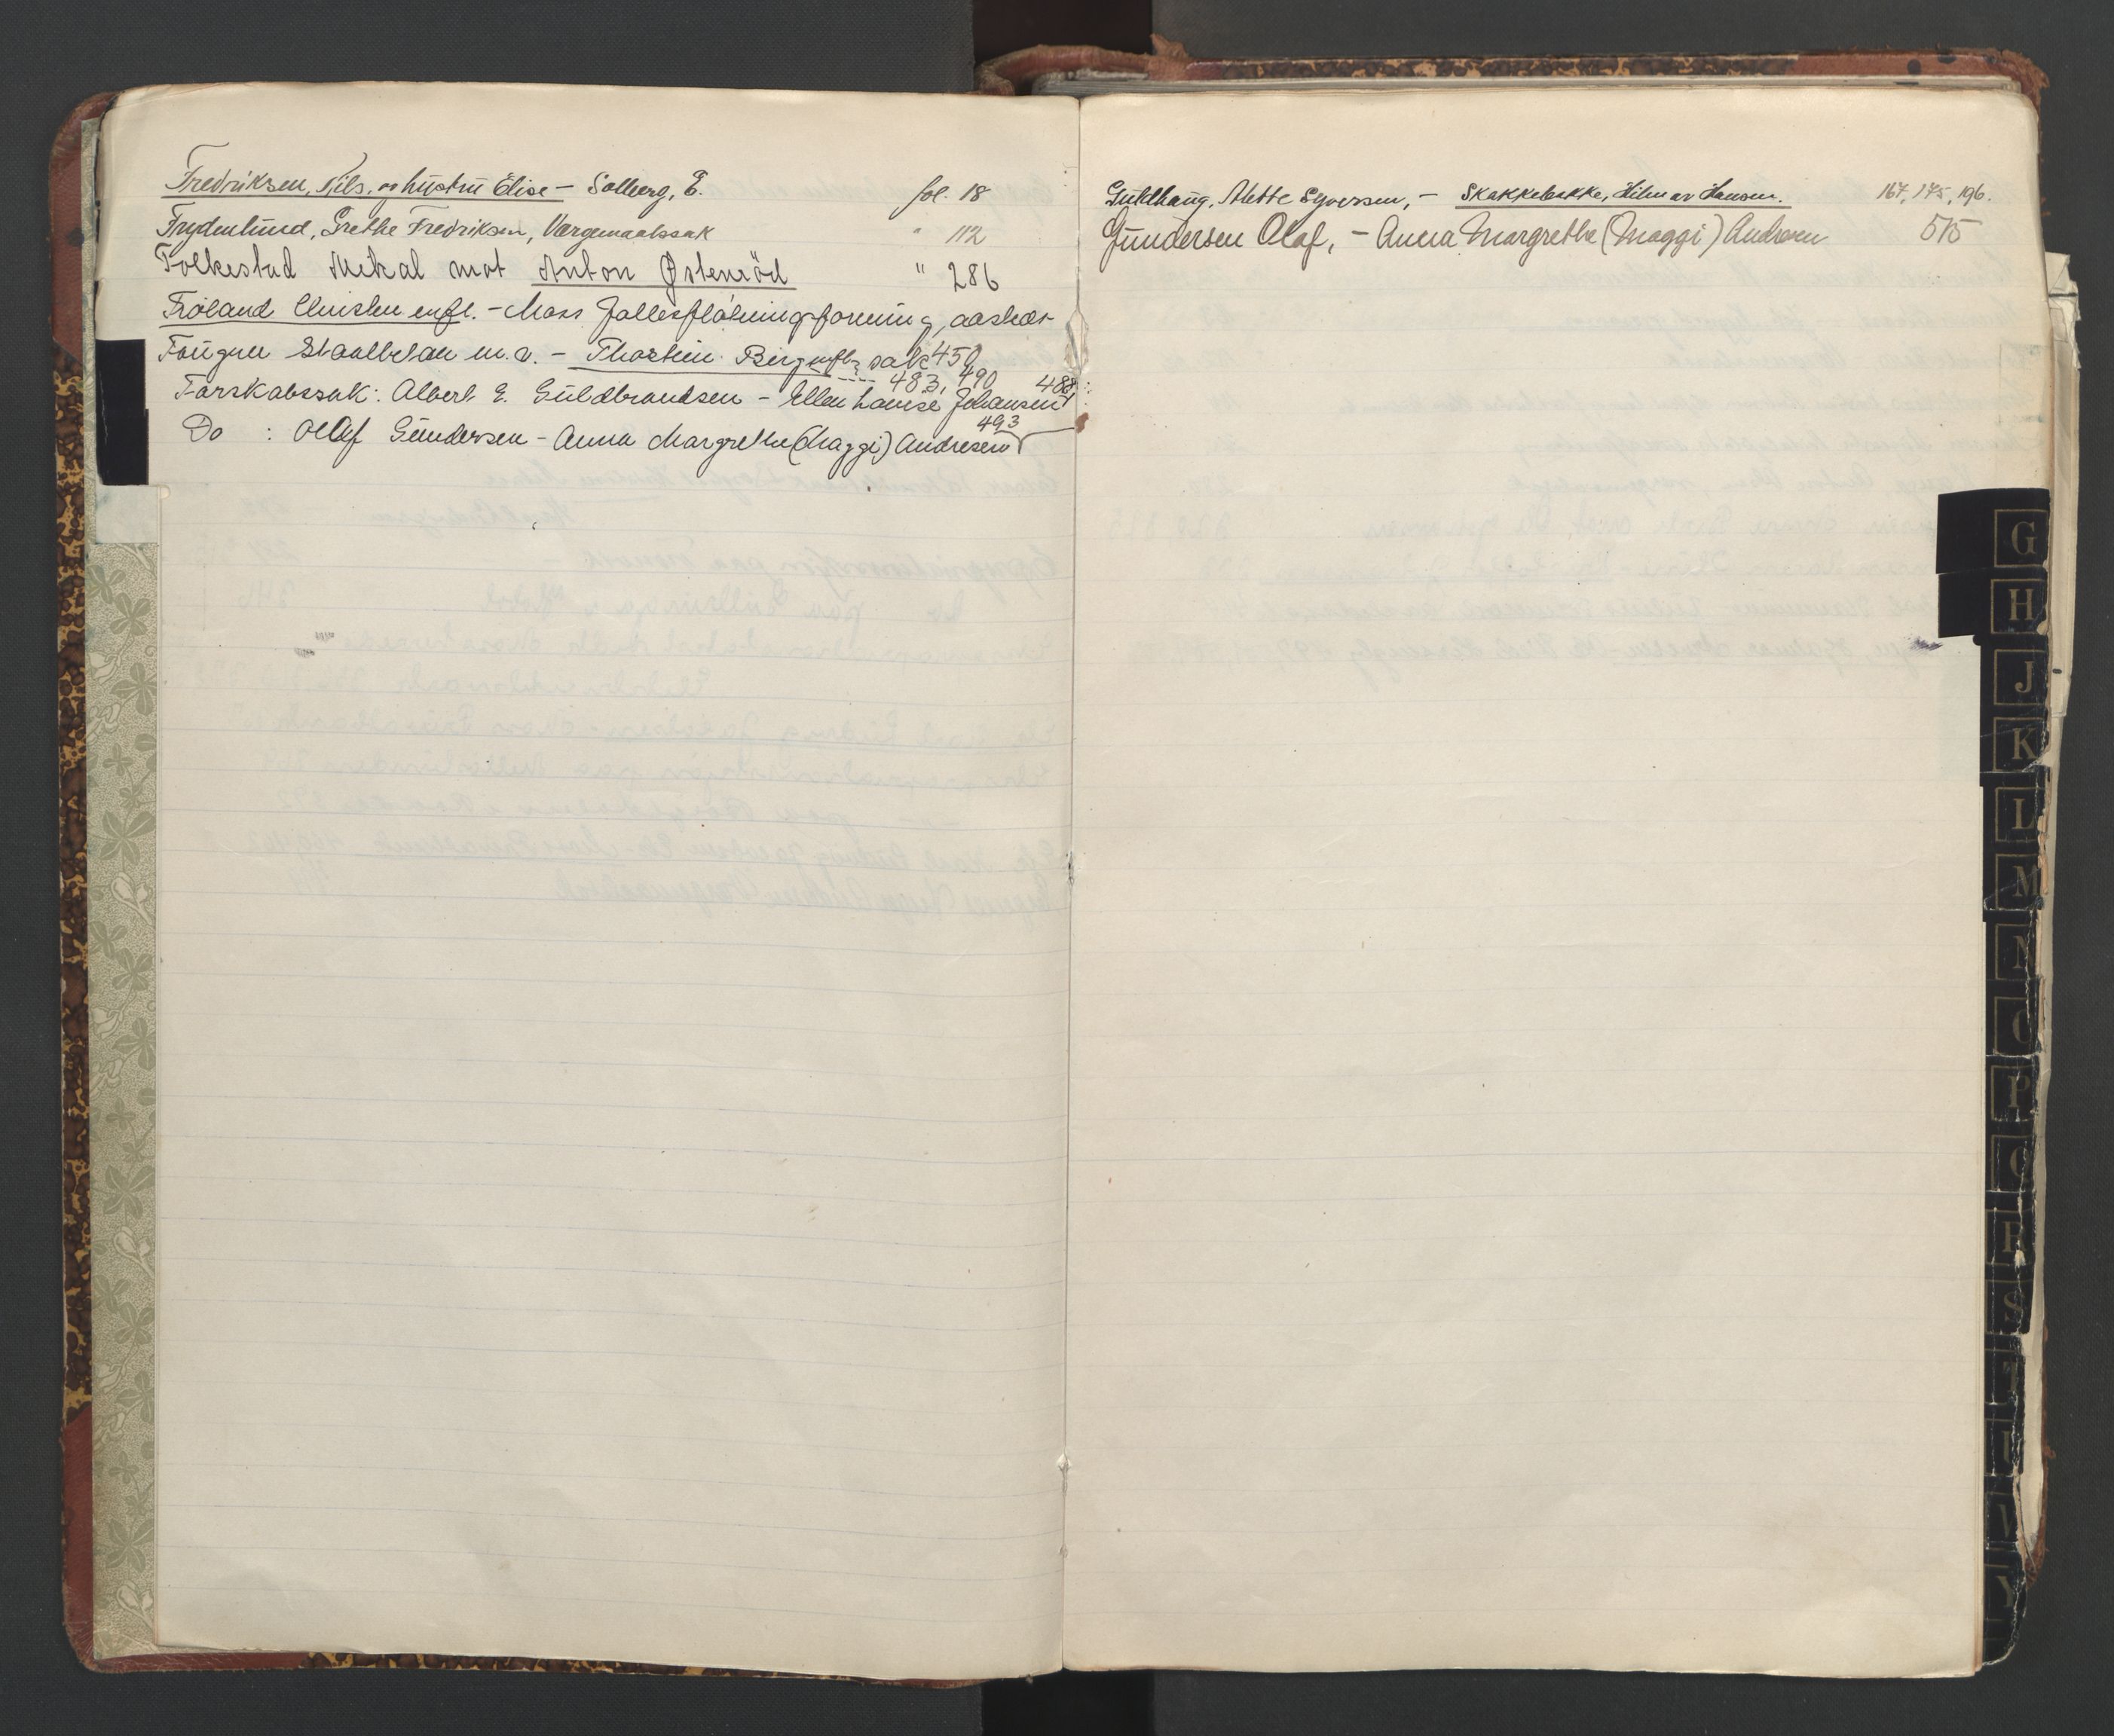 Fredriksen, Nils, og hustru Elise – Solberg, E. fol. 18
Frydenlund, Grethe Fredriksen, Værgemaalssak " 112
Folkestad Mekal mot Anton Østenröd " 286
Fröland Christen enfl. – Moss Fællesflötningsforening, aasteds-
Fougner Staalbeton m.v. – Thorstein Berg enfl. sak 450
483, 490
Farskabssak: Albert E. Guldbrandsen – Ellen Louise Johansen 488
Do : Olaf Gundersen – Anna Margrethe (Maggi) Andresen 493
Guldhaug, Mette Syversen, – Skakkebakke, Hilmar Hansen. 167, 175, 196.
Gundersen Olaf, – Anna Margrethe (Maggi) Andresen 515
G
H
J
K
L
M
N
O
P
Q
R
S
T
U
V
Y